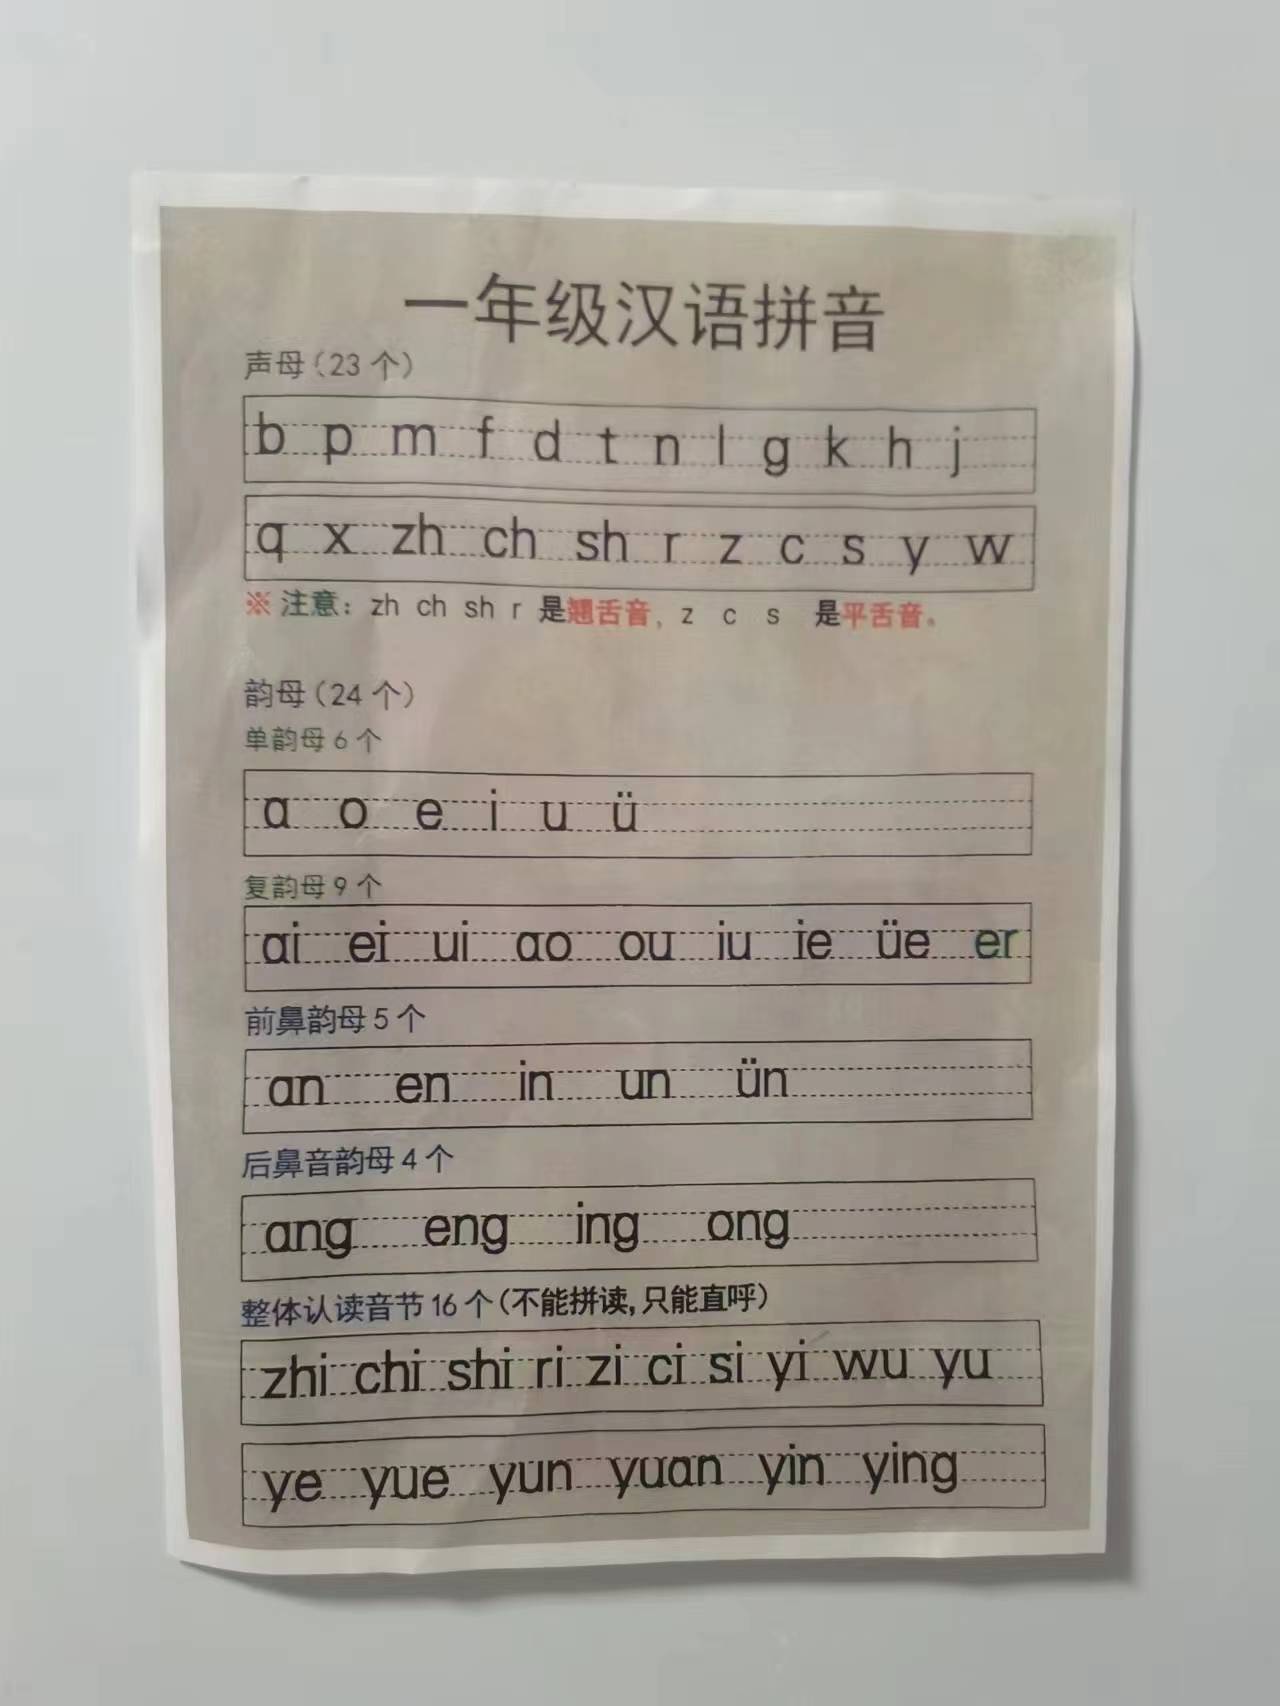 一年级汉语拼音
声母(23 个)
b p m f d t n l g k h j
q x zh ch sh r z c s y w
※ 注意：zh ch sh r 是翘舌音，z c s 是平舌音。
韵母(24 个)
单韵母 6 个
ɑ o e i u ü
复韵母 9 个
ɑi ei ui ɑo ou iu ie üe er
前鼻韵母 5 个
ɑn en in un ün
后鼻音韵母 4 个
ɑng eng ing ong
整体认读音节 16 个(不能拼读,只能直呼)
zhi chi shi ri zi ci si yi wu yu
ye yue yun yuɑn yin ying